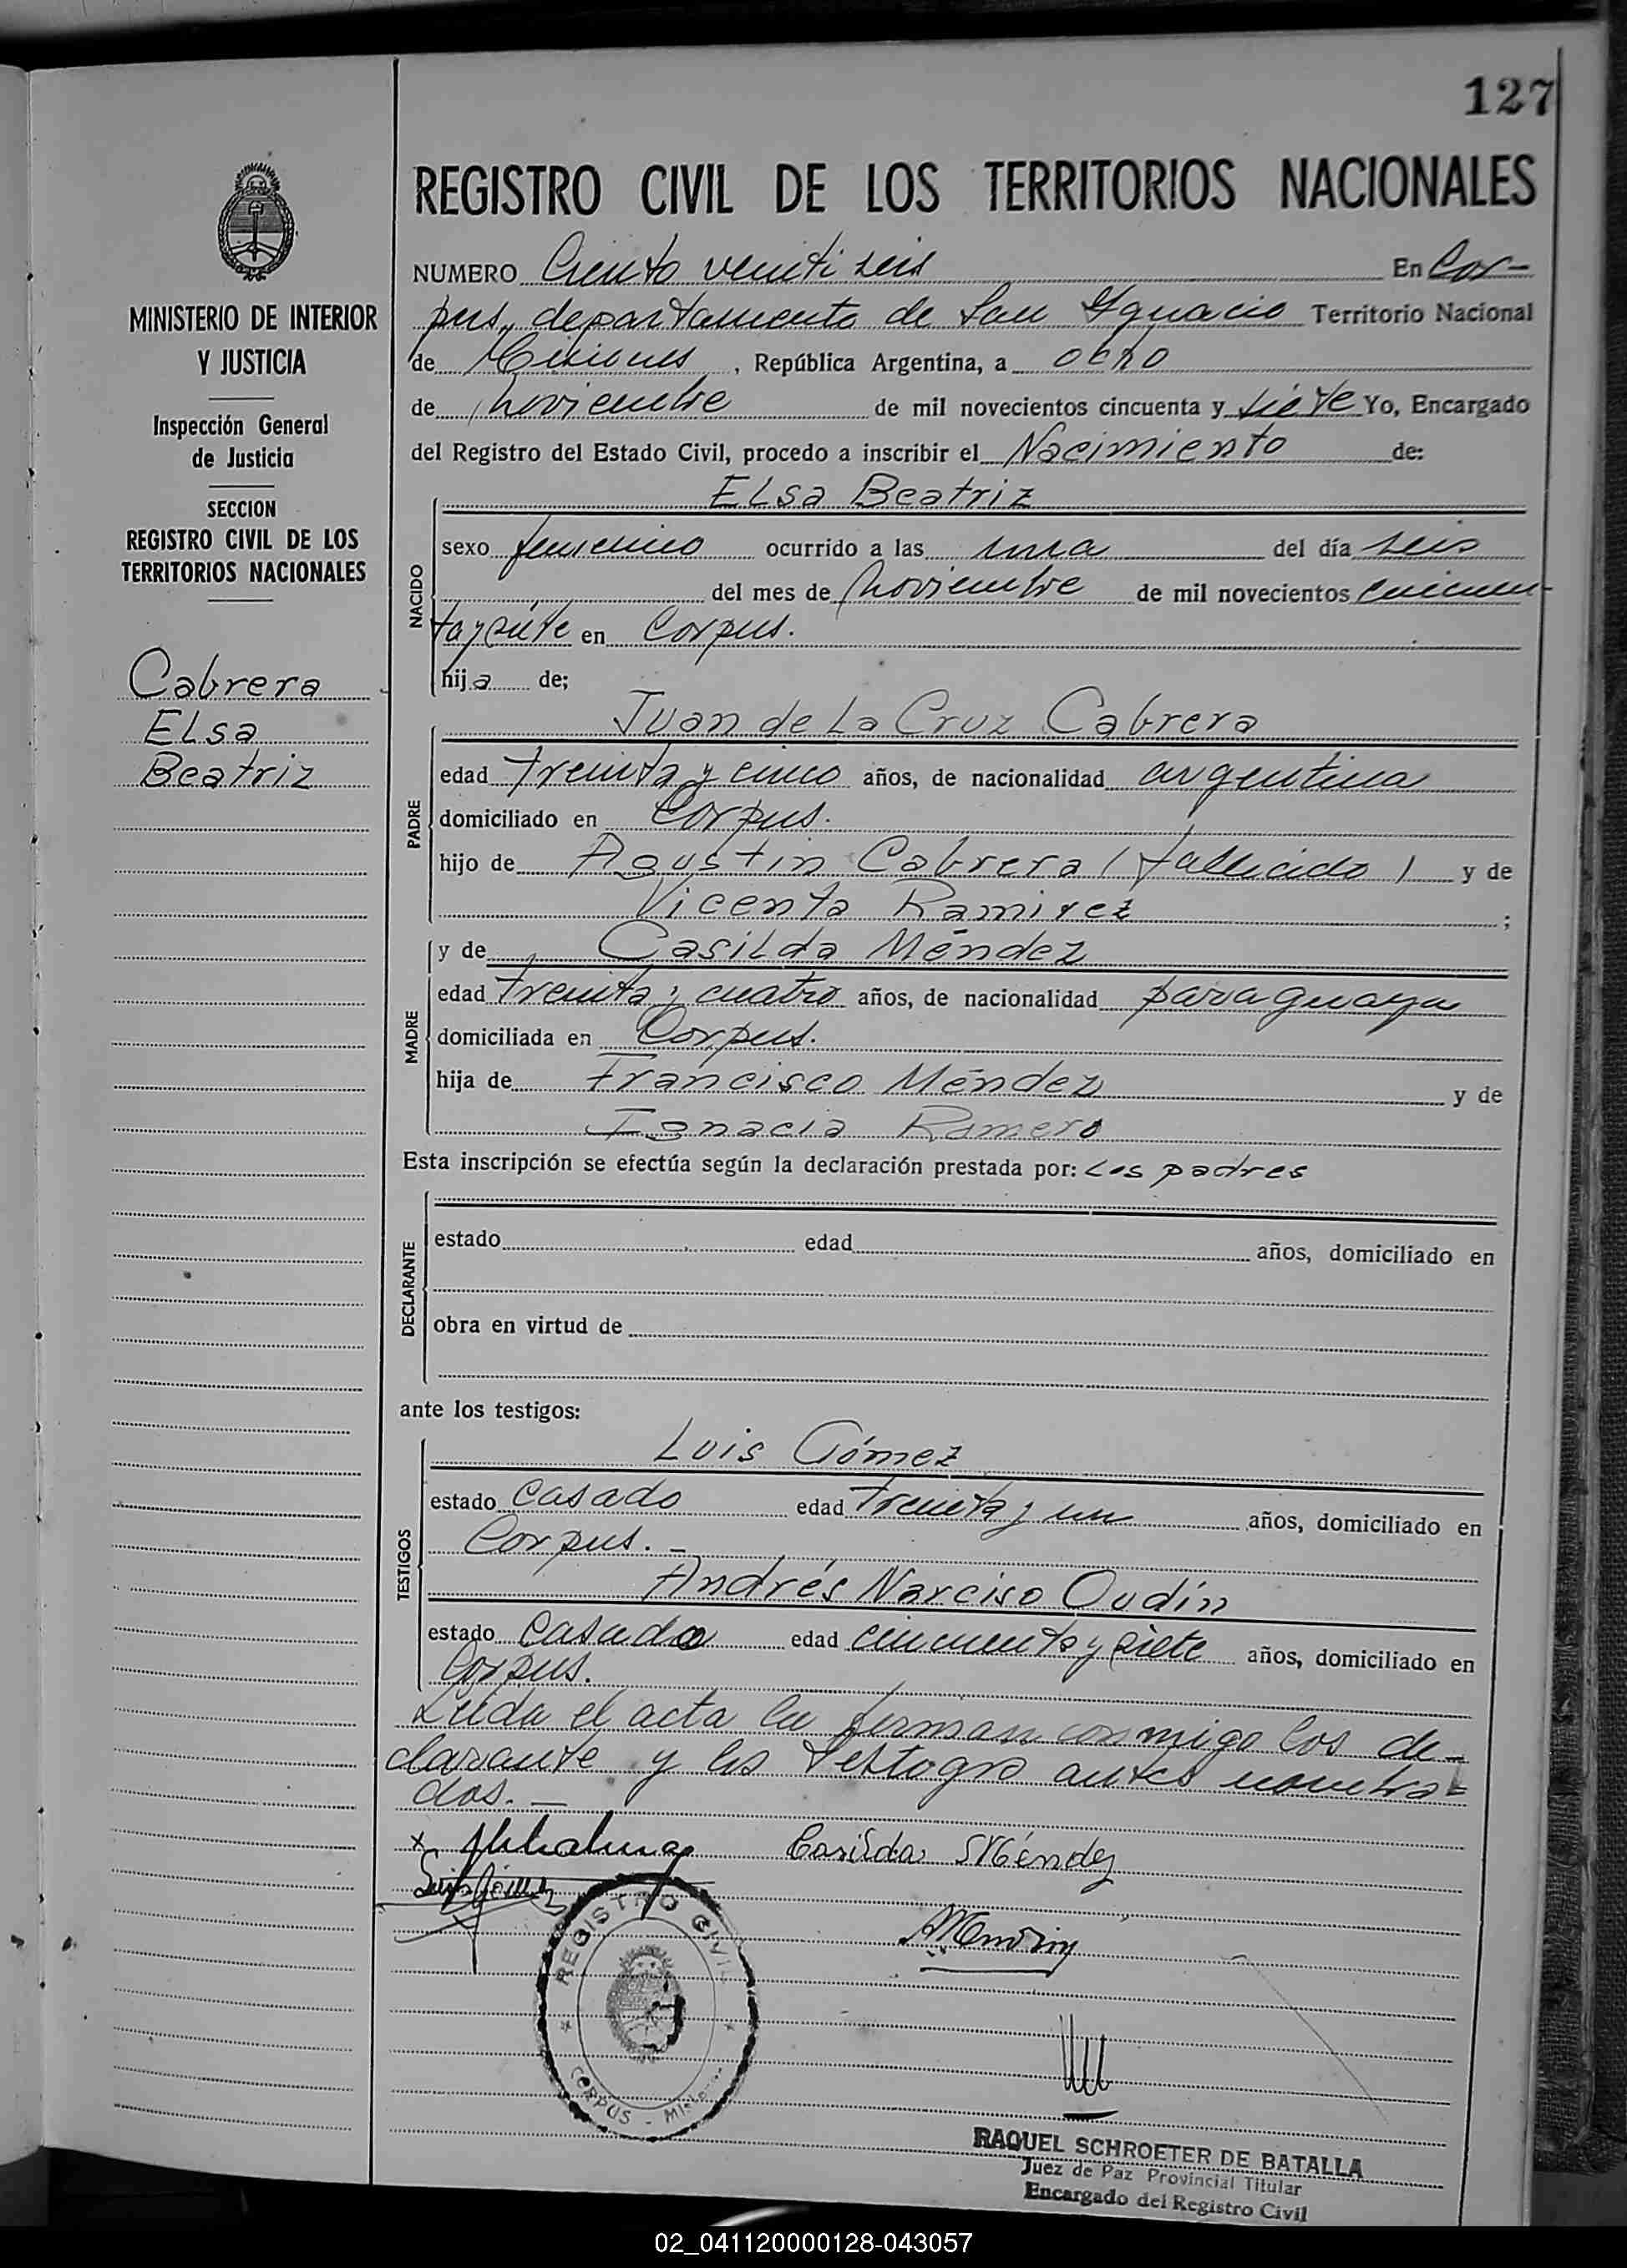 127
REGISTRO CIVIL DE LOS TERRITORIOS NACIONALES
MINISTERIO DE INTERIOR
Y JUSTICIA
Inspección General
de Justicia
SECCION
REGISTRO CIVIL DE LOS
TERRITORIOS NACIONALES
Cabrera
Elsa
Beatriz
NUMERO Ciento veinti seis En Cor-
pus, departamento de San Ignacio Territorio Nacional
de Misiones, República Argentina, a ocho
de noviembre de mil novecientos cincuenta y siete Yo, Encargado
del Registro del Estado Civil, procedo a inscribir el Nacimiento de:
Elsa Beatriz
NACIDO
sexo femenino ocurrido a las una del día seis
del mes de noviembre de mil novecientos cincuen-
ta y siete en Corpus.
hija de;
Juan de La Cruz Cabrera
PADRE
edad treinta y cinco años, de nacionalidad argentina
domiciliado en Corpus.
hijo de Agustin Cabrera (fallecido) y de
Vicenta Ramirez ;
y de Casilda Méndez
MADRE
edad treinta y cuatro años, de nacionalidad paraguaya
domiciliada en Corpus.
hija de Francisco Méndez y de
Ignacia Romero
Esta inscripción se efectúa según la declaración prestada por: Los padres
DECLARANTE
estado edad años, domiciliado en
obra en virtud de
ante los testigos:
Luis Gómez
TESTIGOS
estado casado edad treinta y un años, domiciliado en
Corpus. -
Andrés Narciso Oudín
estado casado edad cincuenta y siete años, domiciliado en
Corpus.
Leída el acta la firman conmigo los de-
clarante y los testogro antes nombra=
dos. -
x Casilda Méndez
Luis Gómez
REGISTRO CIVIL
CORPUS - Misiones
RAQUEL SCHROETER DE BATALLA
Juez de Paz Provincial Titular
Encargado del Registro Civil
02_041120000128-043057